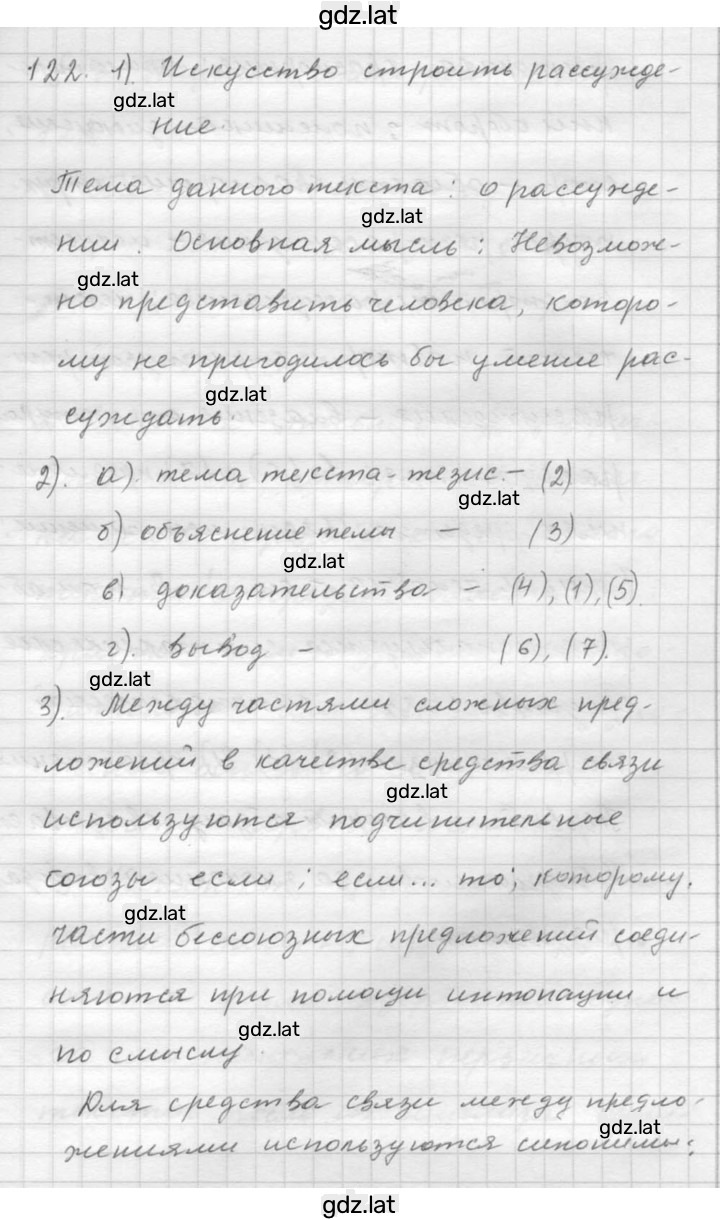 gdz.lat
122. 1). Искусство строить рассужде-
gdz.lat
ние
Тема данного текста: о рассужде-
gdz.lat
нии. Основная мысль: Невозмож-
gdz.lat
но представить человека, которо-
му не пригодилось бы умение рас-
gdz.lat
суждать
2). а). тема текста-тезис. – (2)
gdz.lat
б) объяснение темы – (3)
gdz.lat
в) доказательства – (4), (1), (5).
г). вывод – (6), (7).
gdz.lat
3). Между частями сложных пред-
ложений в качестве средства связи
gdz.lat
используются подчинительные
союзы если; если... то; которому.
gdz.lat
части бессоюзных предложений соеди-
няются при помощи интонации и
gdz.lat
по смыслу.
Для средства связи между предло-
gdz.lat
жениями используются синонимы:
gdz.lat